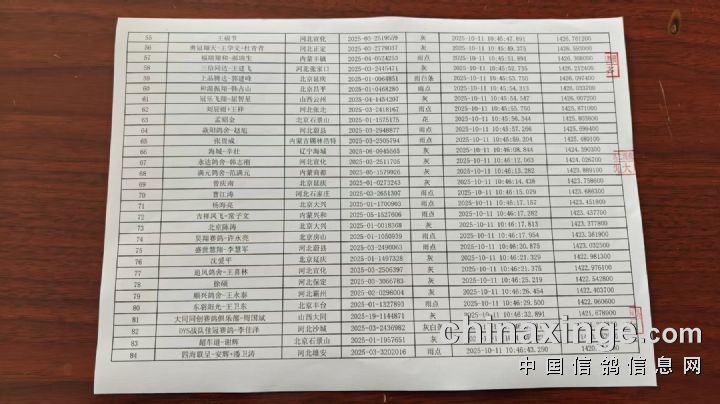 55 王福节 河北宣化 2025-03-2519559 灰 2025-10-11 10:45:47.891 1426.761200
56 奥冠翔天-王学文+杜青青 河北正定 2025-03-2779037 灰 2025-10-11 10:45:49.375 1426.593000
57 内蒙丰镇 2025-05-0524253 雨点 2025-10-11 10:45:51.291
58 三信同达-王建飞 河北张家口 2025-03-2445471 灰 2025-10-11 10:45:52.735 1426.212400
59 上品腾达-郭建峰 北京延庆 2025-01-0964851 雨白条 2025-10-11 10:45:53.750 1426.097400
60 和源振翔-韩占山 北京昌平 2025-01-0468280 雨点 2025-10-11 10:45:54.313 1426.033200
61 冠乐飞翔-崔智星 山西云州 2025-04-1454207 灰 2025-10-11 10:45:54.547 1426.007200
62 刘景娟+王祥 河北张北 2025-03-2418167 雨点 2025-10-11 10:45:55.750
63 孟昭金 北京石景山 2025-01-1575175 花 2025-10-11 10:45:56.344 1425.803600
64 赢翔鸽舍-赵旭 河北蔚县 2025-03-2948877 雨点 2025-10-11 10:45:57.266 1425.699400
65 张贵成 内蒙古锡林浩特 2025-03-2505794 雨点 2025-10-11 10:45:59.204 1425.480100
66 海城-辛壮 辽宁海城 2025-06-0945565 灰 2025-10-11 10:46:08.844 1424.390300
67 永达鸽舍-韩志刚 河北宣化 2025-03-2511705 灰 2025-10-11 10:46:12.063 1424.026700
68 满元鸽舍-范满元 内蒙商都 2025-05-1579926 灰 2025-10-11 10:46:13.282 1423.889100
69 曾庆南 北京延庆 2025-01-0273243 灰 2025-10-11 10:46:14.438 1423.758600
70 曹江涛 河北石家庄 2025-03-2651307 雨点 2025-10-11 10:46:15.079 1423.686300
71 杨海亮 北京大兴 2025-01-1700963 雨点 2025-10-11 10:46:17.157 1423.451900
72 吉祥风飞-常子文 内蒙兴和 2025-05-1527606 雨点 2025-10-11 10:46:17.282 1423.437700
73 北京陈涛 北京大兴 2025-01-0018368 灰 2025-10-11 10:46:17.813 1423.377800
74 昊翔赛鸽-许永亮 北京房山 2025-01-1050939 雨点 2025-10-11 10:46:18.985 1423.245700
75 盛世慧翔-李慧军 河北蔚县 2025-03-2490063 雨点 2025-10-11 10:46:20.875 1423.032500
76 沈爱平 北京延庆 2025-01-1497328 灰 2025-10-11 10:46:21.329 1422.981300
77 追风鸽舍-王喜林 河北宣化 2025-03-2506397 灰 2025-10-11 10:46:21.375 1422.976100
78 徐硕 河北保定 2025-03-3066783 灰 2025-10-11 10:46:25.219 1422.542800
79 顺兴鸽舍-王永泰 河北霸州 2025-02-0298004 灰 2025-10-11 10:46:26.454 1422.403600
80 东窮阳光-王卫东 北京丰台 2025-01-1327893 雨点 2025-10-11 10:46:29.500 1422.060600
81 大同同创赛鸽俱乐部-周国斌 山西大同 2025-19-1144871 灰 2025-10-11 10:46:32.891 1421.678900
82 DYS战队佳冠赛鸽-李佳泽 河北沙城 2025-03-2436982 灰白条
83 超车道-谢辉 北京石景山 2025-01-1957651 灰
84 四海联呈-安辉+潘卫涛 河北雄安 2025-03-3202016 雨点 2025-10-11 10:46:43.250
chinaxinge.com
中国信鸽信息网